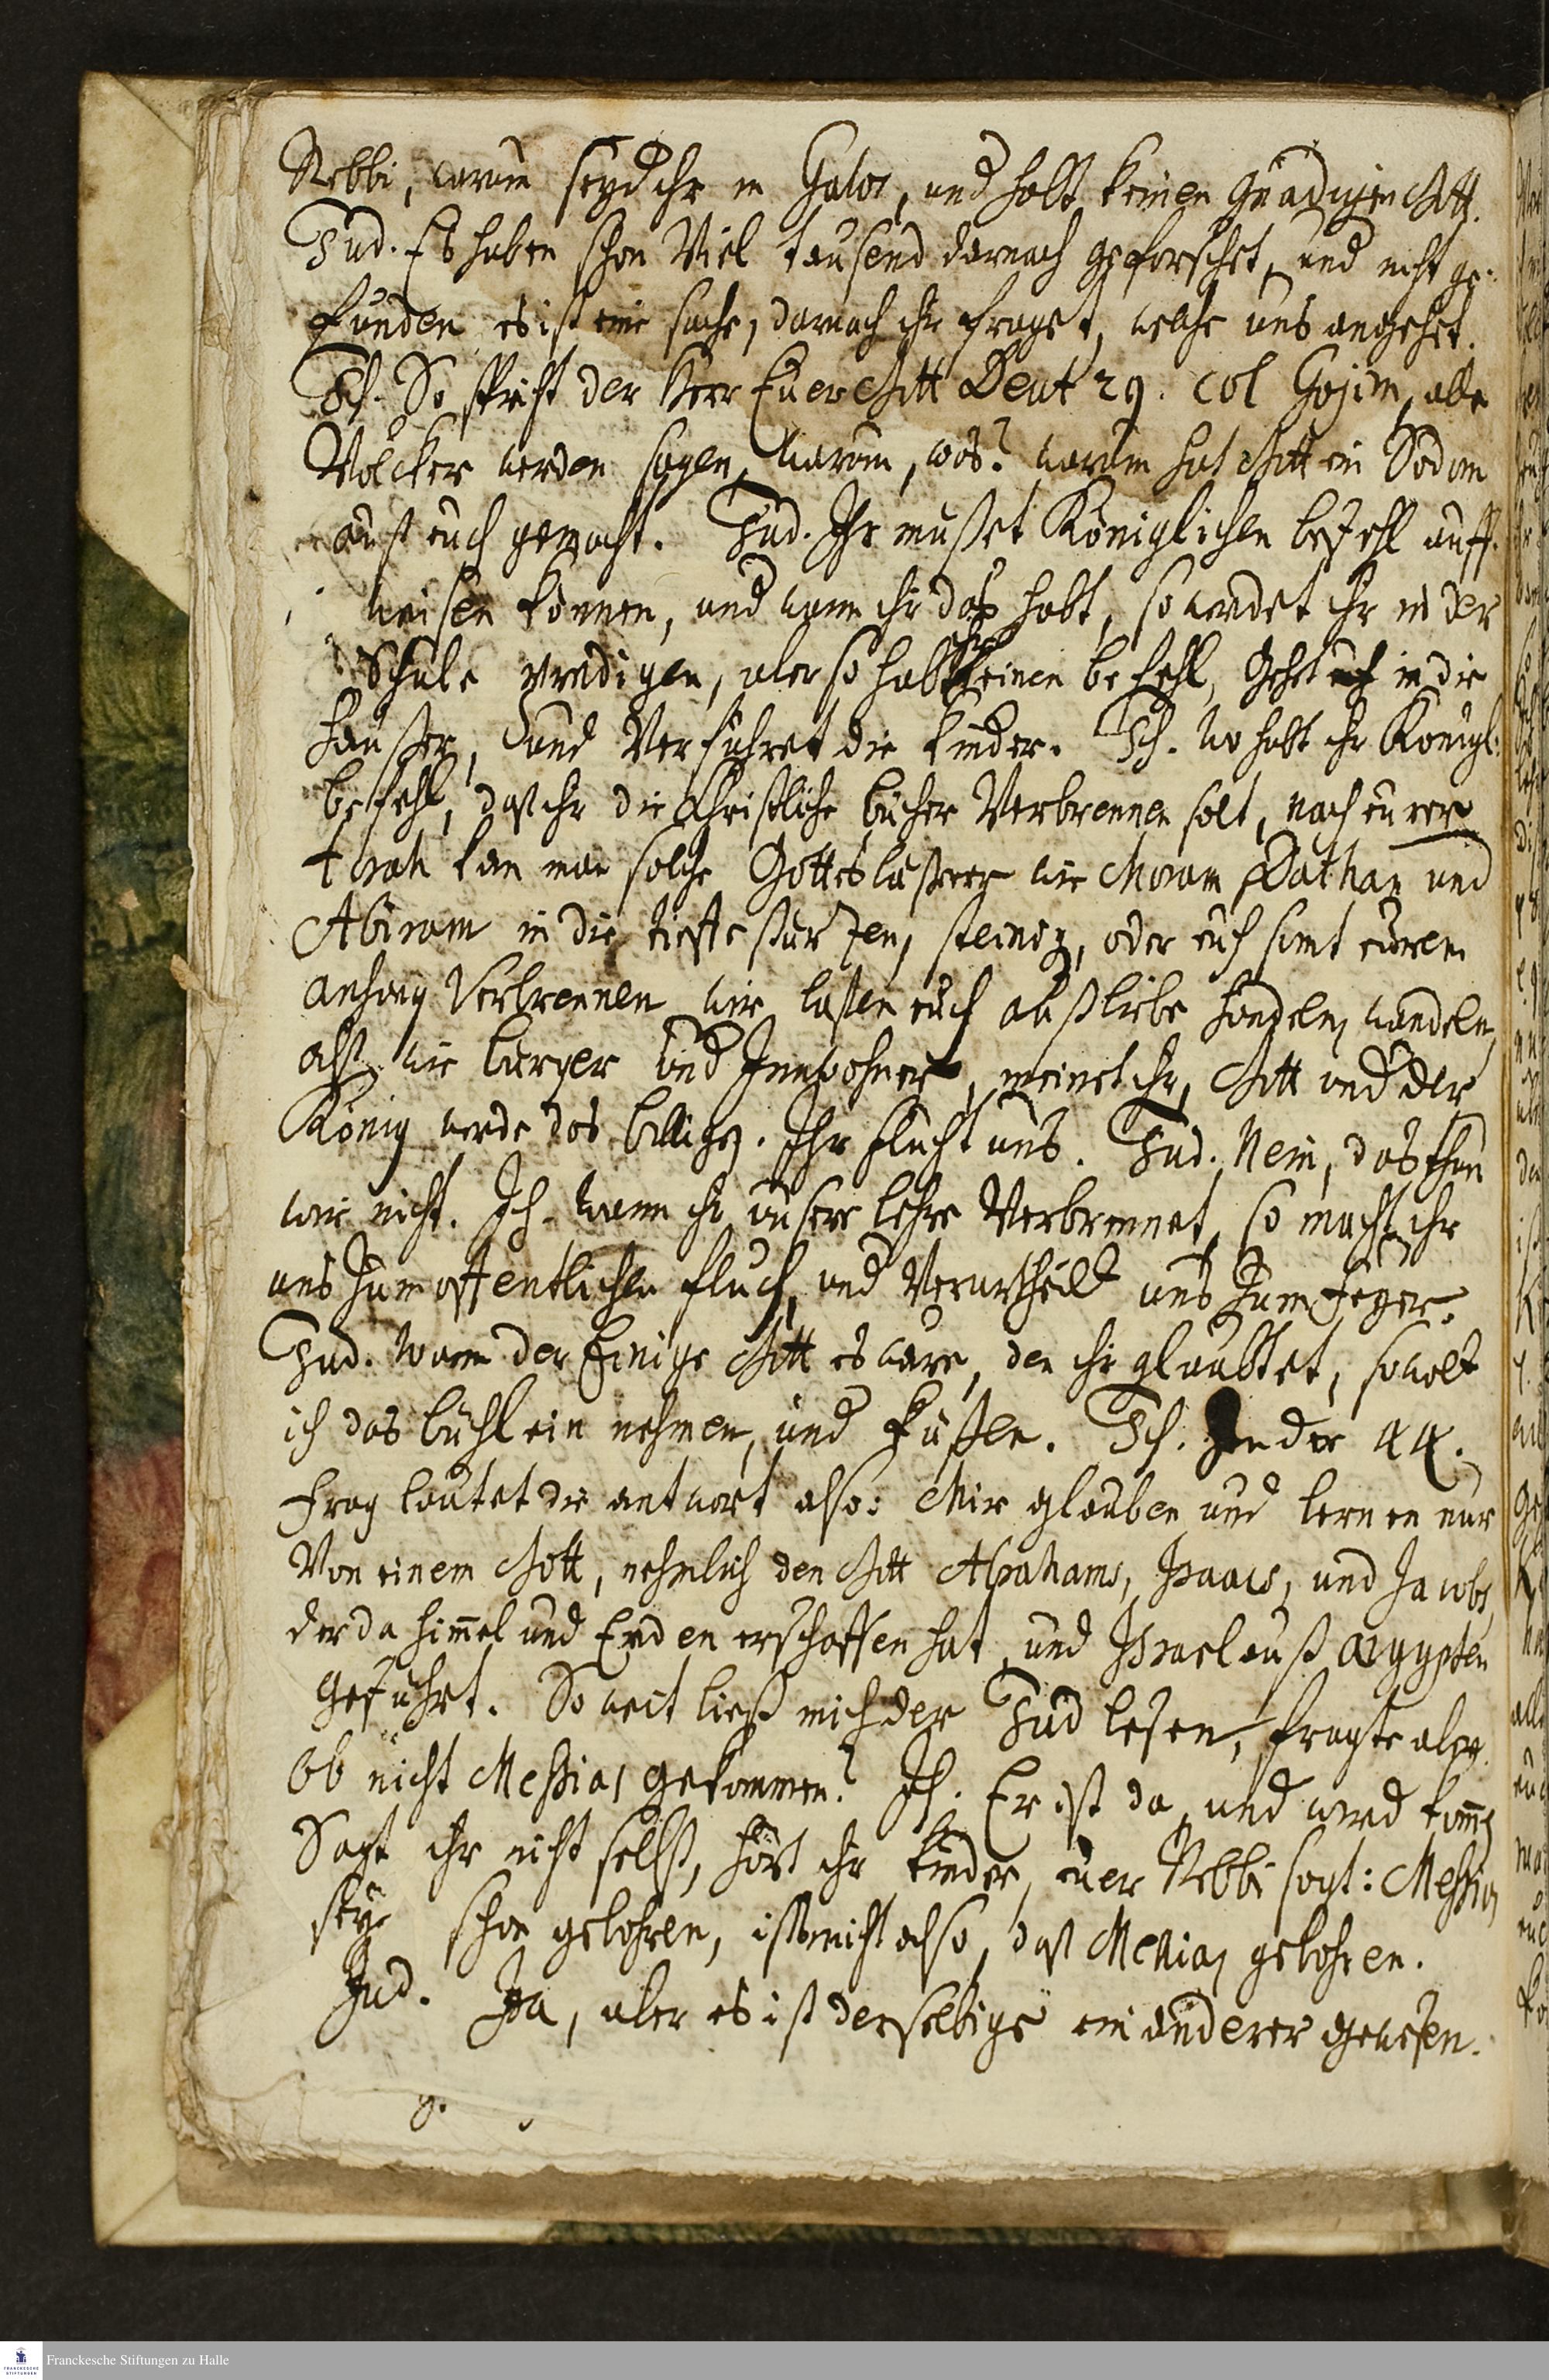 Rebbi, warum seyd ihr in Galos, und habt keinen Gnädigen Gott.
Jud. Es haben schon Viel tausend darnach geforschet, und nicht ge-
funden es ist eine sache, darnach ihr fraget, welche uns angehet.
Ich. So spricht der Herr Euer Gott Deut 29. Col Gojim, alle
Völcker werden sagen, warum, was? warum hat Gott ein Sodom
auß euch gemacht. Jud. Ihr mußet Königlichen befehl auff-
weisen können, und wann ihr das habt, so werdet ihr in der
Schule predigen, aber so habt ihr keinen befehl, Gehet in die
häußer, und Verführet die kinder. Ich. Wo habt ihr Königl:
befehl, daß ihr die Christliche bücher Verbrennen solt, nach eurer
torah kan man solche Gotteslästerer wie Dathan und
Abiram in die tieffe stürzen, steinig, oder euch samt eurem
anhang Verbrennen wir laßen euch auß liebe handeln, wandeln,
alß wie bürger und Innwohner, meinet ihr, Gott und der
König werde das billigen. Ihr flucht uns. Jud. Nein, das thun
wir nicht. Ich. wann ihr unsere lehre Verbrennet, so macht ihr
uns zum offentlichen fluch, und Verurtheilt uns zum feyer.
Jud. Wann der Einige Gott es wäre, den ihr glaubtet, so wolt
ich das büchlein nehmen, und küßen. Ich. In der 44.
frag lautet die antwort also: Wir glauben und lernen nur
Von einem Gott, nehmlich den Gott Abrahams, Isaacs, und Jacobs,
der da himmel und Erden erschaffen hat, und Israel auß aegypten
geführt. So weit ließ mich der Jud lesen, fragte aber
Ob nicht Meßias gekommen? Ich. Er ist da, und wird komen
Sagt ihr nicht selbst, hört ihr kinder, euer Rebbi sagt: Meßias
seye schon gebohren, ists nicht also, daß Messias gebohren.
Jud. Ja, aber es ist derselbige ein anderer gewesen.
Franckesche Stiftungen zu Halle